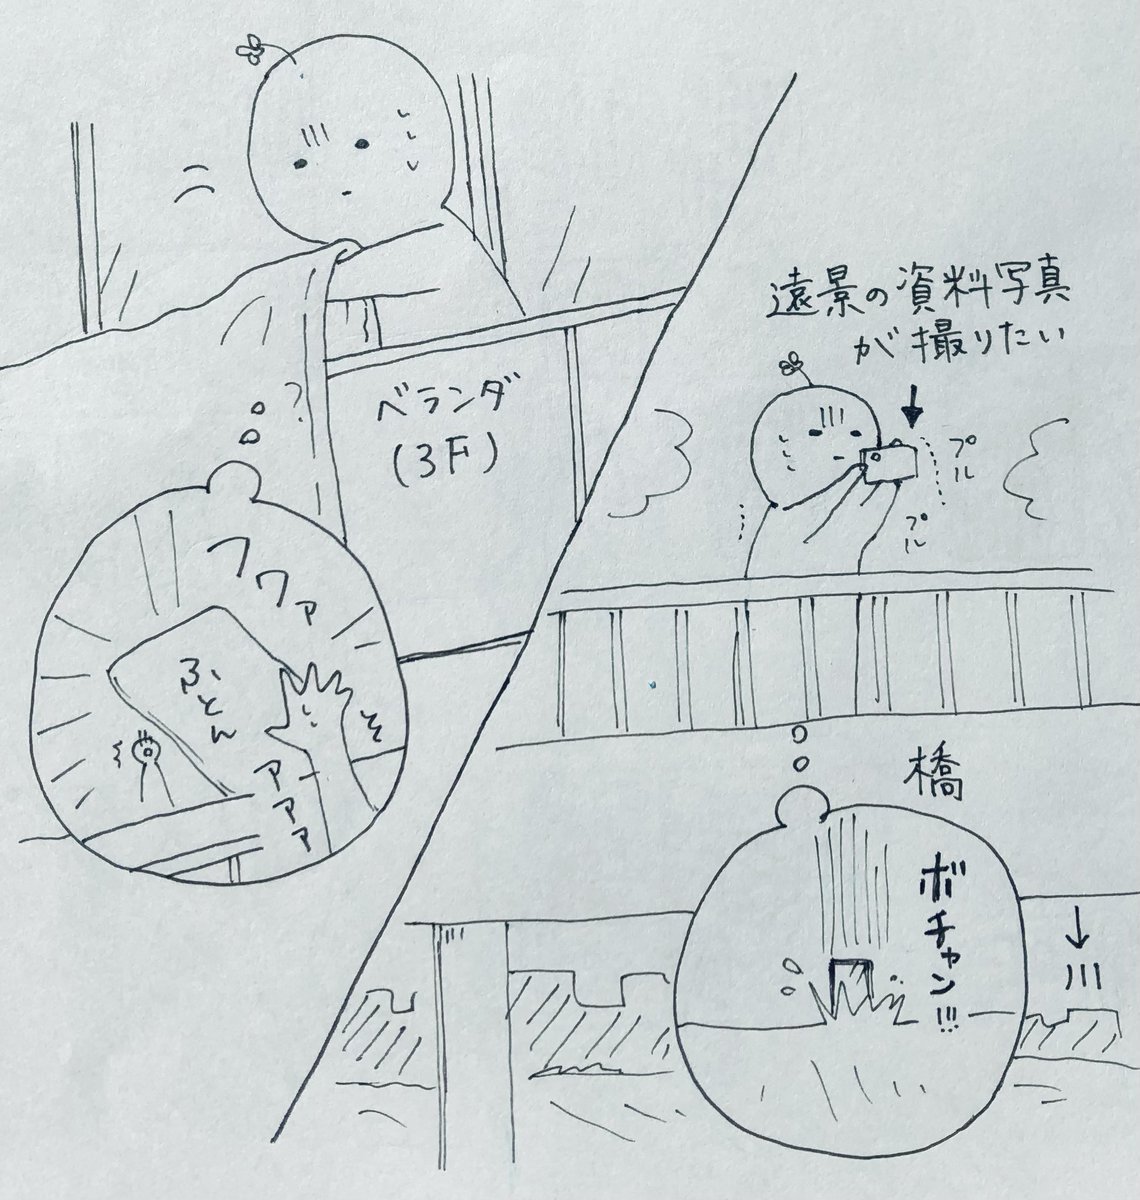 ベランダ
(3F)
フワァ
ふとん
アアアア
遠景の資料写真
が撮りたい
プル
プル
橋
ボチャン!!!
川